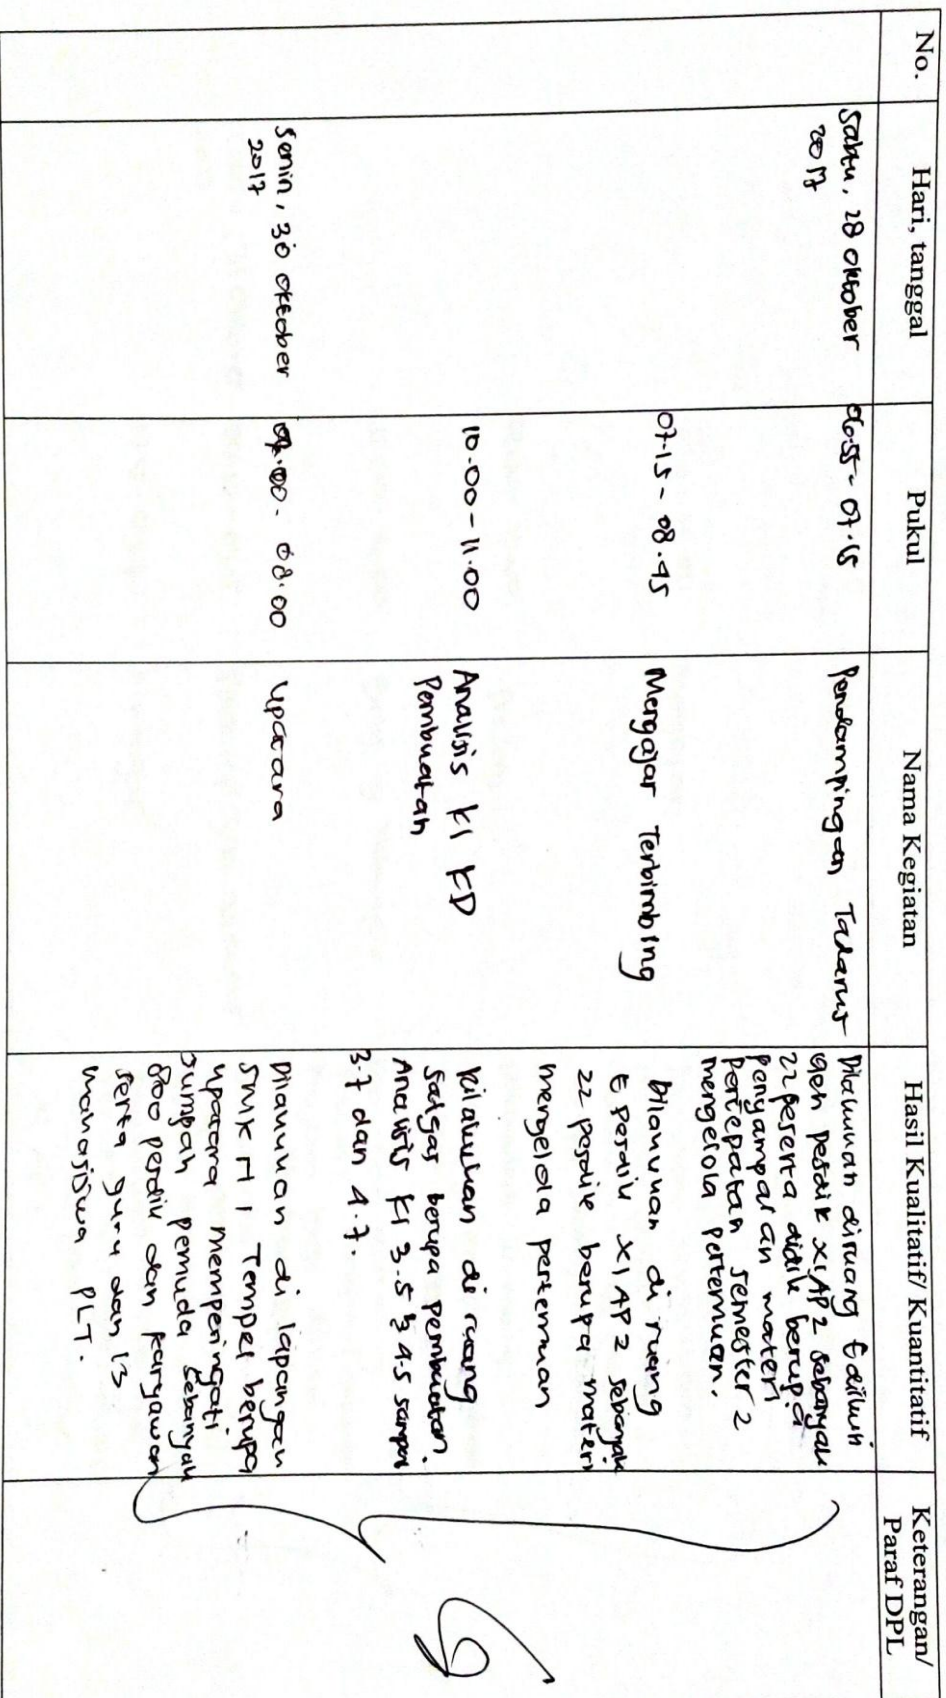 No.
Hari, tanggal
Pukul
Nama Kegiatan
Hasil Kualitatif/ Kuantitatif
Keterangan/
Paraf DPL
Sabtu, 28 Oktober
2017
06.55 - 07.15
Pendampingan Tadarus
Dilakukan diruang
oleh pesdik XI AP2 sebanyak
22 peserta didik berupa
penyampaian materi
percepatan semester 2
mengelola pertemuan.
07.15 - 08.45
Mengajar Terbimbing
Dilakukan di ruang
E pesdik XI AP2 sebanyak
22 pesdik berupa materi
mengelola pertemuan
10.00 - 11.00
Analisis KI KD
Pembuatan
Dilakukan di ruang
satgas berupa pembuatan.
Analisis KI 3.5 & 4.5 sampai
3.7 dan 4.7.
Senin, 30 Oktober
2017
07.00 - 08.00
Upacara
Dilakukan di lapangan
SMK N 1 Tempel berupa
upacara memperingati
sumpah pemuda sebanyak
800 perdik dan karyawan
serta guru dan 13
mahasiswa PLT.